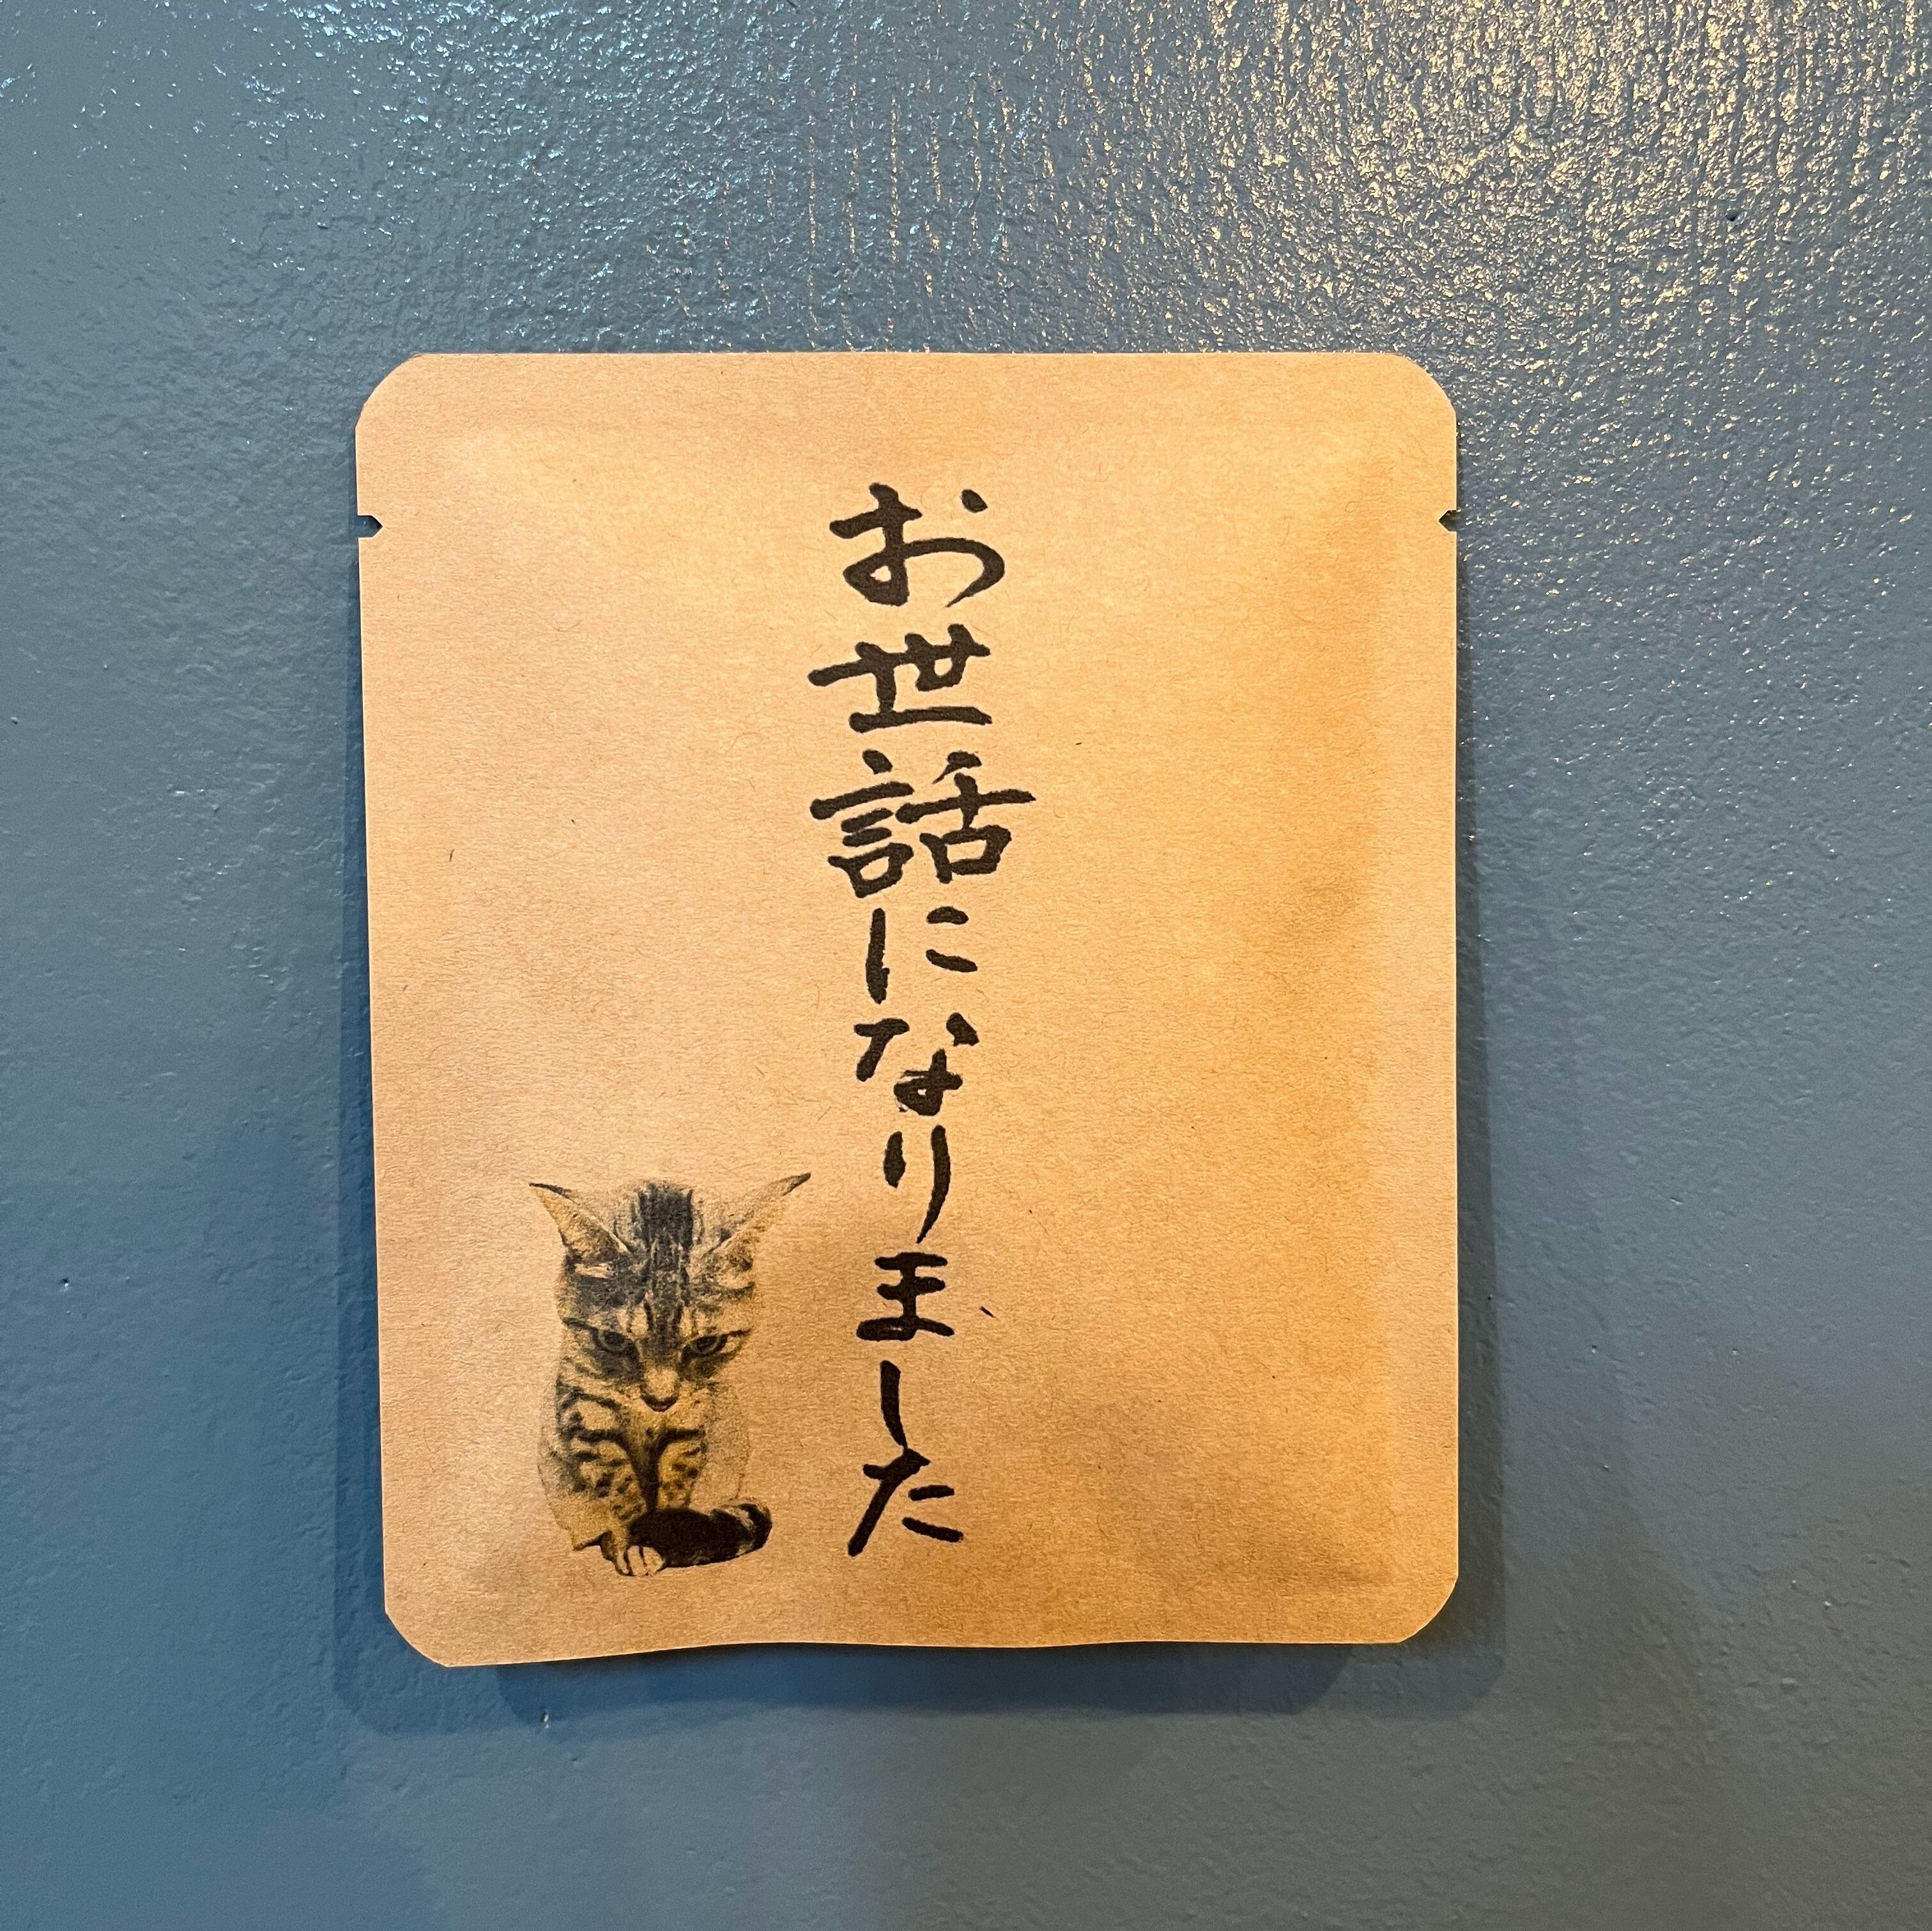 お世話になりました